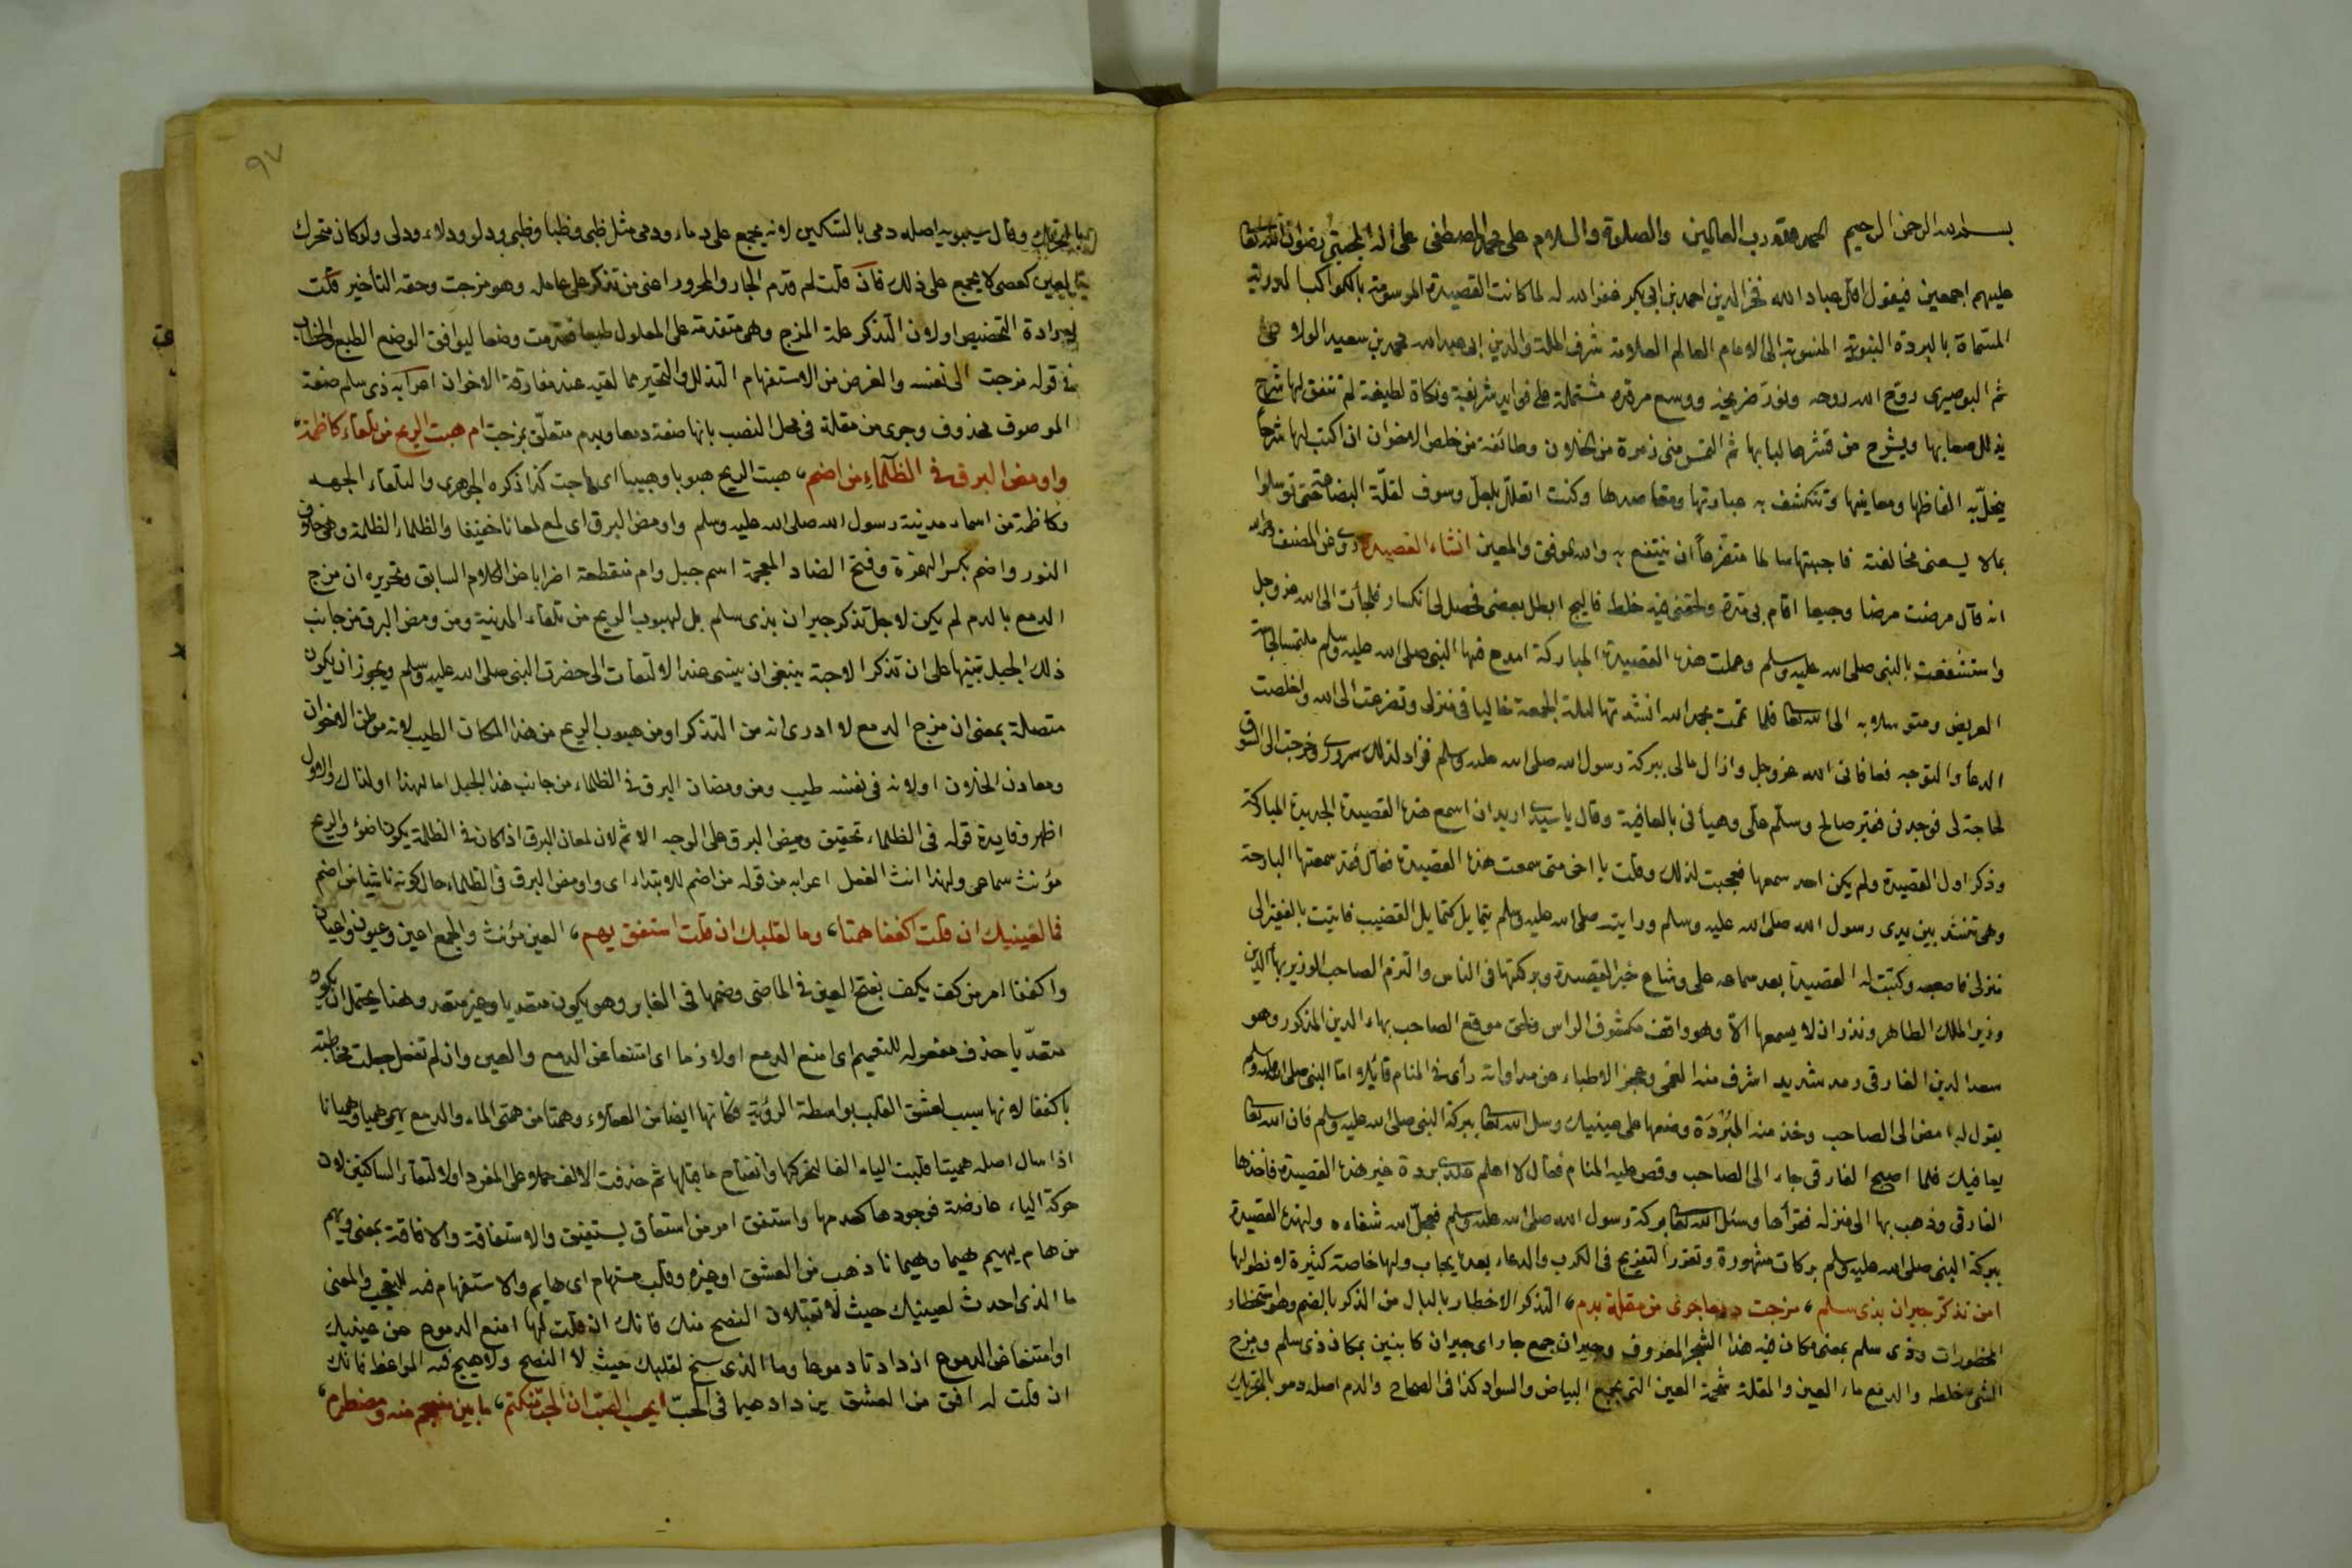 بسم الله الرحمن الرحيم الحمد لله رب العالمين والصلوة والسلام على محمد المصطفى على اله المجتبى رضوان الله تعالى
عليهم اجمعين فيقول اقل عباد الله فخر الدين احمد بن ابى بكر غفر الله له لما كانت القصيدة الموسومة بالكواكب الدرية
المسماة بالبردة النبوية المنسوبة الى الامام العالم العلامة شرف الملة والدين ابى عبد الله محمد بن سعيد الولا صى
ثم البوصيرى روح الله روحه ونور ضريحه ووسع مرقده مشتملة على فوايد شريفة ونكاة لطيفة لم تتفق لها شرح
يذلل صعابها ويشرح من قشرها لبابها ثم التمس منى زمرة من الخلان وطائفة من خلص الاخوان ان اكتب لها شرحا
يخل به الفاظها ومعانيها وتنكشف به عبارتها ومقاصدها وكنت اتعلل بلعل وسوف لقلة البضاعة حتى توسلوا
بما لا يسعنى مخالفته فاجبتها سالما متضرعا ان ينتفع به والله الموفق والمعين انشاء القصيدة روى عن المصنف رحمه الله
انه قال مرضت مرضا وجيعا اقام بى مدة ولحقنى فيه خلط فالج ابطل بعضى فحصل لى انكسار فلجأت الى الله عز وجل
واستشفعت بالنبى صلى الله عليه وسلم وعملت هذه القصيدة المباركة امدح فيها النبى صلى الله عليه وسلم ملتمسا لجاهه
العريض ومتوسلا به الى الله تعالى فلما تمت بحمد الله انشدتها ليلة الجمعة خاليا فى منزلى وتضرعت الى الله واخلصت
الدعأ والتوجه فعافانى الله عز وجل وازال ما لى ببركة رسول الله صلى الله عليه وسلم فزاد لذلك سرورى وخرجت الى السوق
لحاجة لى فوجدنى فقير صالح وسلم على وهنأنى بالعافية وقال يا سيدى اريد ان اسمع هذه القصيدة الجديدة المباركة
وذكر اول القصيدة ولم يكن احد سمعها فعجبت لذلك وقلت يا اخى متى سمعت هذه القصيدة فقال لقد سمعتها البارحة
وهى تنشد بين يدى رسول الله صلى الله عليه وسلم ورايته صلى الله عليه وسلم يتمايل كتمايل القضيب فاتيت بالفقير الى
منزلى فاصحبه وكتبت له القصيدة بعد سماعه على وشاع خبر القصيدة وبركتها فى الناس والتزم الصاحب الوزير بهأ الدين
وزير الملك الطاهر ونذر ان لا يسمعها الا وهو واقف مكشوف الراس ولحق موقع الصاحب بهاء الدين المذكور وهو
سعد الدين الفارقى رمد شديد اشرف منه العمى وعجز الاطباء عن مداواته رأى فى المنام قائلا اما النبى صلى الله عليه وسلم
يقول له امض الى الصاحب وخذ منه البردة وضعها على عينيك وسل الله تعالى ببركة النبى صلى الله عليه وسلم فان الله تعالى
يعافيك فلما اصبح الفارقى جاء الى الصاحب وقص عليه المنام فقال لا اعلم عندى بردة غير هذه القصيدة فاخذها
الفارقى وذهب بها الى منزله فقرأها وسئل الله تعالى ببركة رسول الله صلى الله عليه وسلم فعجل الله شفاءه ولهذه القصيدة
ببركة النبى صلى الله عليه وسلم بركات مشهورة وتقرر التفريج فى الكرب والدعاء بعدها يجاب ولها خاصة كثيرة لا نطولها
امن تذكر جيران بذى سلم، مزجت دمعا جرى من مقلة بدم، التذكر الاخطار بالبال من الذكر بالضم وهو استحضار
المحظورات وذى سلم بمعنى مكان فيه هذا الشجر المعروف وجيران جمع جار اى جيران كائنين بمكان ذى سلم ومزج
الشئ خلطه والدمع ماء العين والمقلة شحمة العين التى تجمع البياض والسواد كذا فى الصحاح والدم اصله دمو بالتحريك
بالتحريك وقال سيبويه اصله دمى بالتسكين لانه يجمع على دماء ودمى مثل ظبى وظبا وظبى ودلو ودلاء ودلى ولو كان متحرك
العين كعصى لا يجمع على ذلك فان قلت لم قدم الجار والمجرور اعنى من تذكر على عامله وهو مزجت وحقه التأخير قلت
لارادة التخصيص او لان التذكر علة المزج وهى متقدمة على المعلول طبعا فقدمت وضعا ليوافق الوضع الطبع والخطاب
فى قوله مزجت الى نفسه والغرض من الاستفهام التذلل والتحير مما لقيه عند مفارقة الاخوان اعرابه ذى سلم صفة
الموصوف محذوف وجرى من مقلة فى محل النصب بانها صفة دمعا وبدم متعلق بمزجت ام هبت الريح من تلقاء كاظمة،
واومض البرق فى الظلماء من اضم، هبت الريح هبوبا وهبيبا اى هاجت كذا ذكره الجوهرى والتلقاء الجهه
وكاظمة من اسماء مدينة رسول الله صلى الله عليه وسلم واومض البرق اى لمع لمعانا خفيفا والظلماء الظلمة وهى خلاف
النور واضم بكسر الهمزة وفتح الضاد المعجمة اسم جبل وام منقطعة اضرابا عن الكلام السابق وتحريره ان مزج
الدمع بالدم لم يكن لاجل تذكر جيران بذى سلم بل لهبوب الريح من تلقاء المدنية ومن ومض البرق من جانب
ذلك الجبل تنبيها على ان تذكر الاحبة ينبغى ان ينسى عند الالتفات الى حضرة النبى صلى الله عليه وسلم ويجوز ان يكون
متصلة بمعنى ان مزج الدمع لا ادرى انه من التذكر او من هبوب الريح من هذا المكان الطيب لانه موطن الاخوان
ومعادن الخلان او لانه فى نفسه طيب ومن ومضان البرق فى الظلماء من جانب هذا الجبل اما لهذا او لذاك والاول
اظهر وفايدة قوله فى الظلماء تحقيق وميض البرق على الوجه الاتم لان لمعان البرق اذا كان فى الظلمة يكون اضوء والريح
مؤنث سماعى ولهذا انث الفعل اعرابه من قوله من اضم للابتداء اى واومض البرق فى الظلماء حال كونه ناشيا من اضم
فما لعينيك ان قلت اكففا همتا، وما لقلبك ان قلت استفق يهم، العين مؤنث والجمع اعين وعيون واعيان
واكففا امر من كف يكف بفتح العين فى الماضى وضمها فى الغابر وهو يكون متعديا وغير متعد وهنا يحتمل ان يكون
متعديا حذف مفعوله للتعميم اى امنع الدمع او لازما اى امتنعا عن الدمع والعين وان لم تفعل جعلت مخاطبة
باكففا لانها سبب لعشق القلب بواسطة الرؤية فكانها ايضا من العقلاء وهمتا من همى الماء والدمع يهمى هميا وهميانا
اذا سال اصله هميتا قلبت الياء الفا لتحركها وانفتاح ما قبلها ثم حذفت الالف حملا على المفرد او لالتقاء الساكنين لان
حركة الياء عارضة فوجودها كعدمها واستفق امر من استفاق يستفيق والاستفاقة والافاقة بمعنى ويهم
من هام يهيم هيما وهيمانا ذهب من العشق او غيره وقلب مستهام اى هايم والاستفهام فيه للتعجب والمعنى
ما الذى احدث لعينيك حيث لا تقبلان النصح منك فانك ان قلت لهما امنع الدموع عن عينيك
او امتنعا عن الدموع ازدادتا دموعا وما الذى سنح لقلبك حيث لا النصح ولا يهيج فيه المواعظ فانك
ان قلت له افق من العشق يزداد هيما فى الحب ايحسب الصب ان الحب منكتم، ما بين منسجم منه ومضطرم،